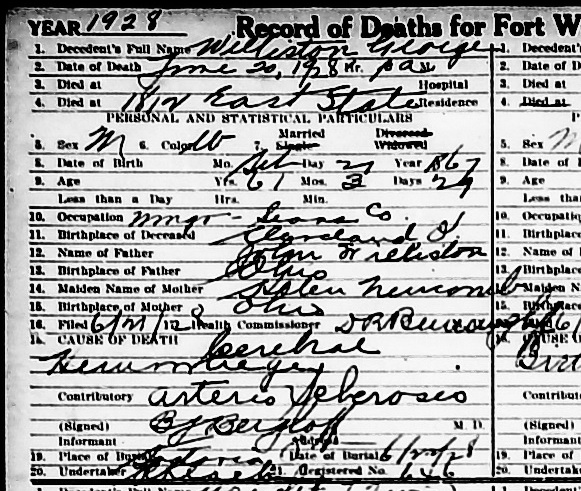 YEAR 1928 Record of Deaths for Fort W
1. Decedent's Full Name Williston George
2. Date of Death June 20, 1928 Hr. M.
3. Died at Hospital
4. Died at 1812 East State Residence
PERSONAL AND STATISTICAL PARTICULARS
5. Sex M 6. Color W 7. Married Single Divorced Widowed
8. Date of Birth Mo. Day 21 Year 1867
9. Age Yrs. 61 Mos. 3 Days 29
Less than a Day Hrs. Min.
10. Occupation Co.
11. Birthplace of Deceased Cleveland O.
12. Name of Father John Williston
13. Birthplace of Father Ohio
14. Maiden Name of Mother Helen Newcomb
15. Birthplace of Mother Ohio
16. Filed 6/21/128 Health Commissioner
18. CAUSE OF DEATH Cerebral
Hemorrhage
Contributory arterio Sclerosis
(Signed) M. D.
Informant Address
19. Place of Burial Date of Burial 6/22/28
20. Undertaker 21. Registered No. 646
1. Decedent's
2. Date of D
3. Died at
4. Died at
5. Sex M
8. Date of
9. Age
Less tha
10. Occupatio
11. Birthplac
12. Name of
13. Birthplac
14. Maiden N
15. Birthplac
CAUSE OF
Contribut
(Signed)
Informant
19. Place of
20. Undertak